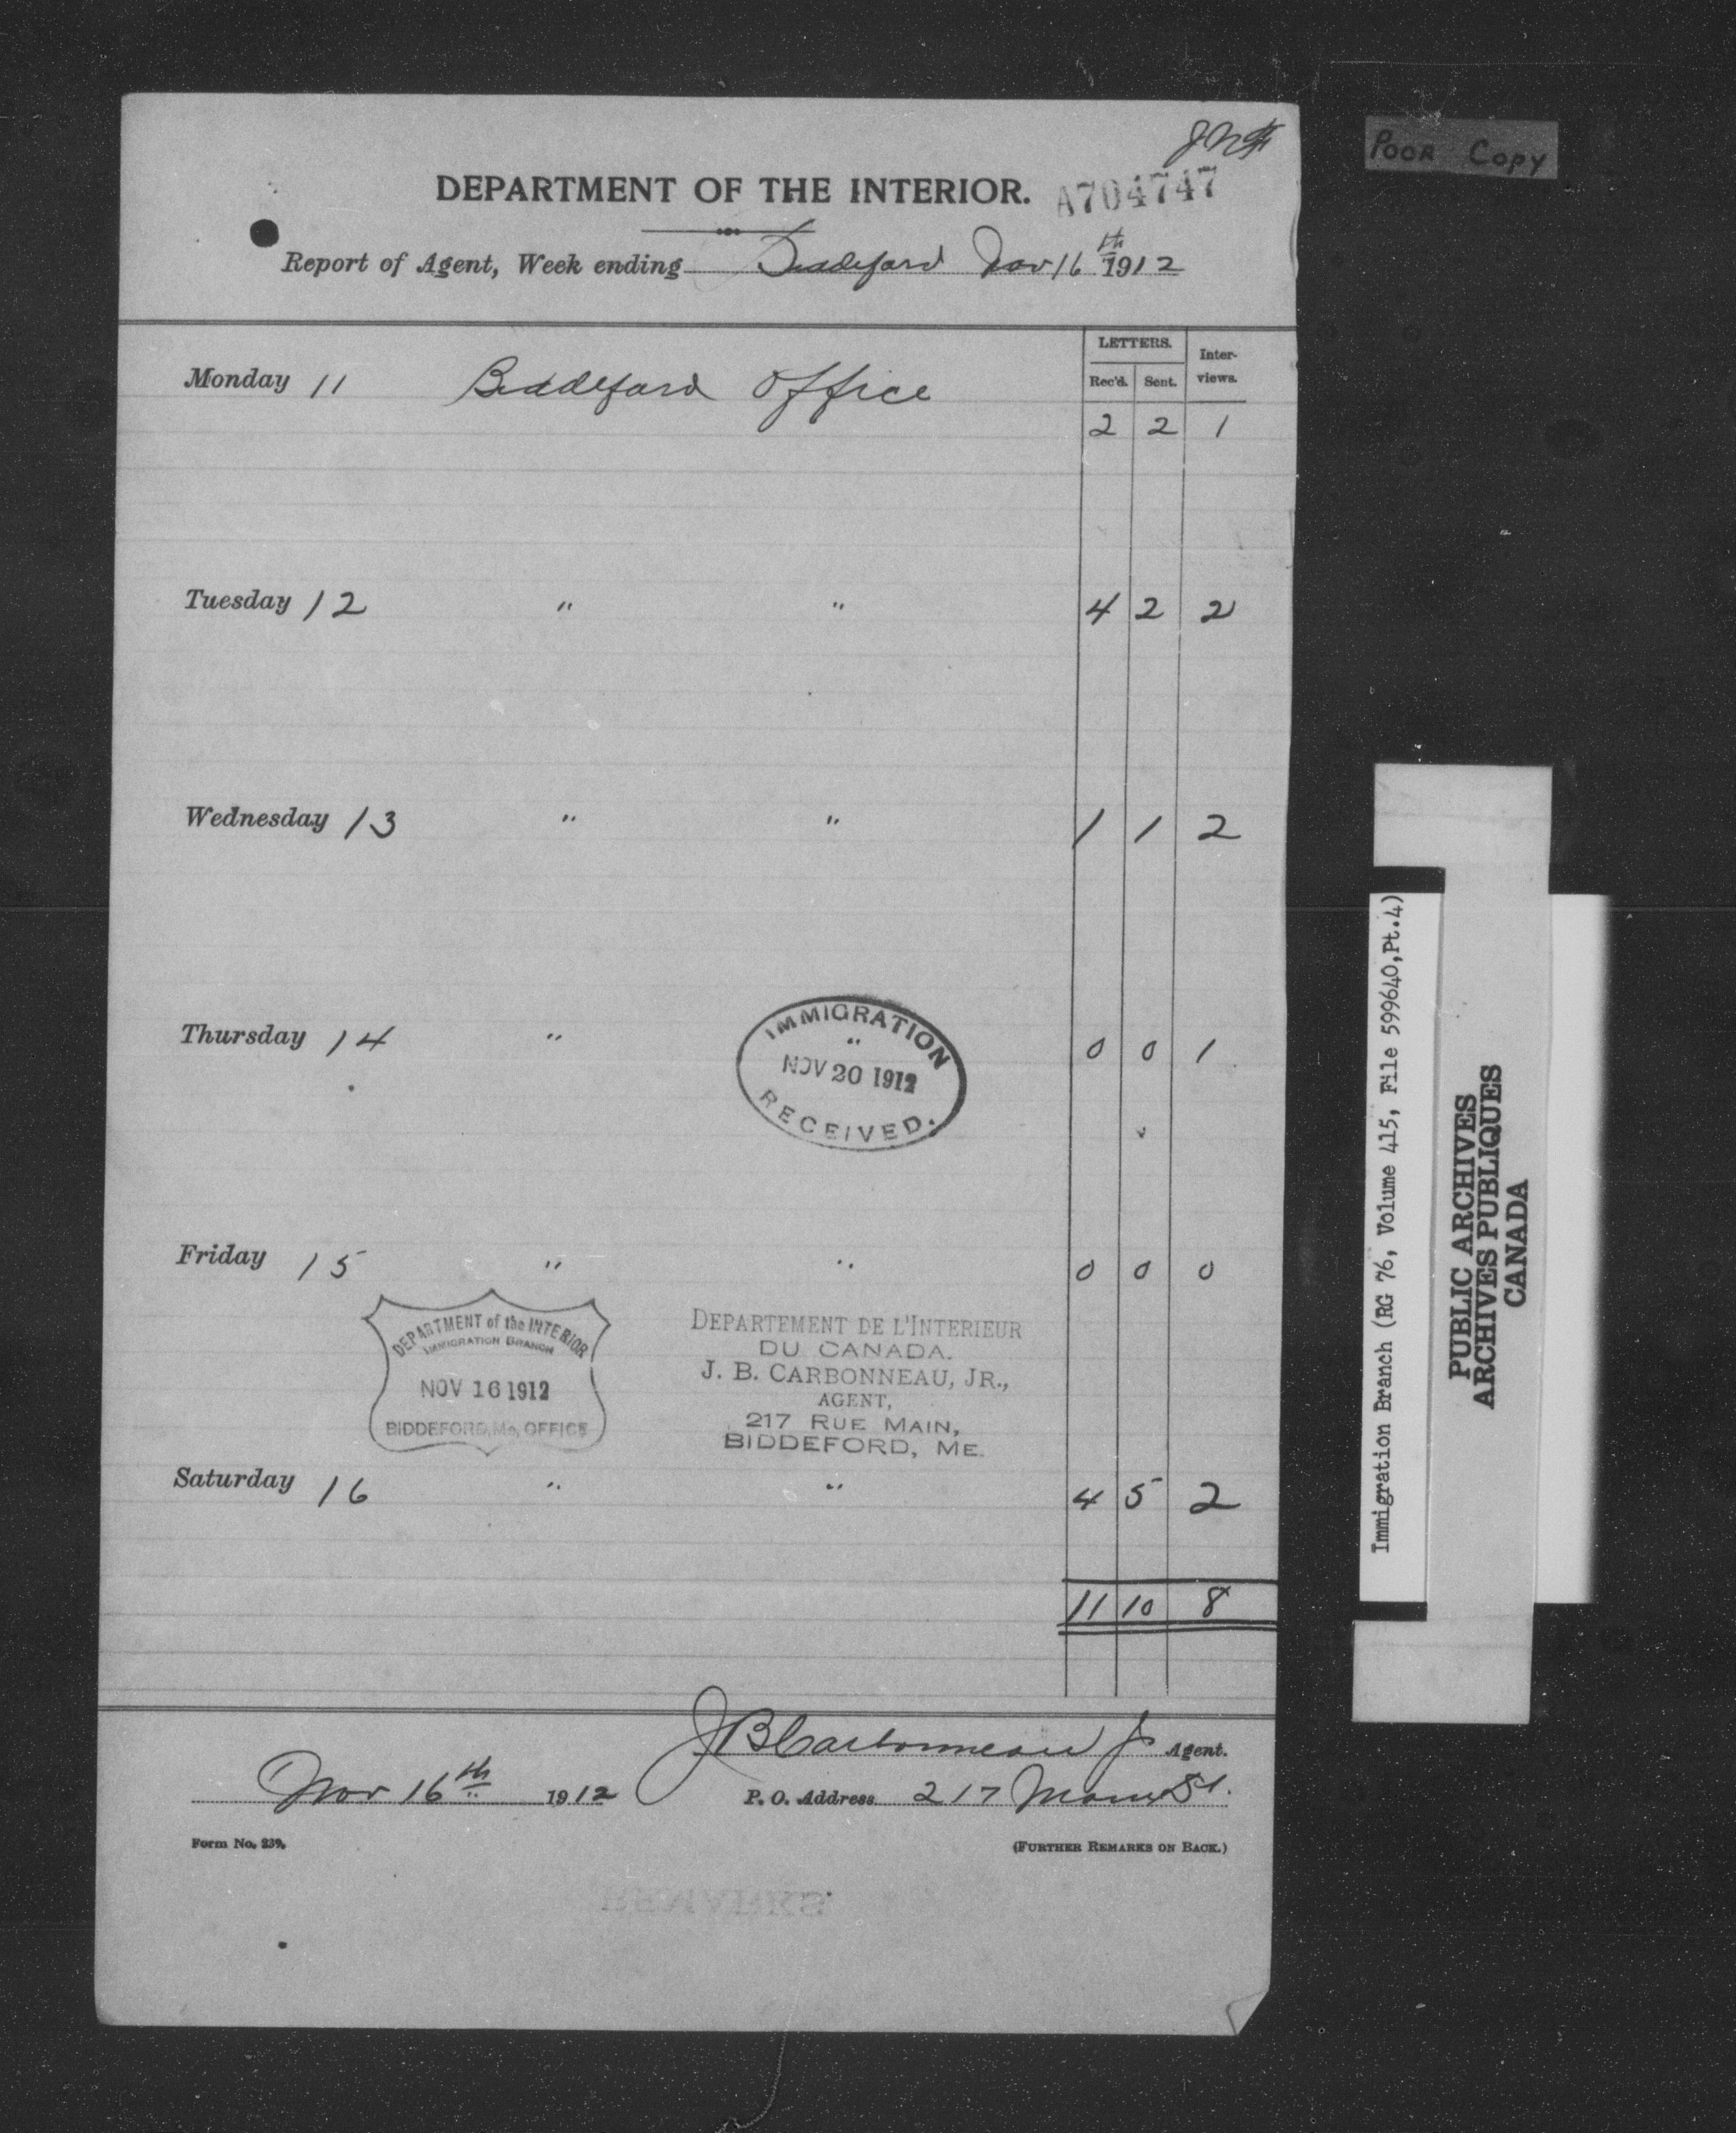 Poor Copy
DEPARTMENT OF THE INTERIOR. A704747
Report of Agent, Week ending Biddeford Nov 16th 1912
LETTERS. Inter-views.
Rec'd. Sent.
Monday 11 Biddeford Office
2 2 1
Tuesday 12 " " 4 2 2
Wednesday 13 " " 1 1 2
Thursday 14 " " 0 0 1
IMMIGRATION
NOV 20 1912
RECEIVED.
Friday 15 " " 0 0 0
DEPARTMENT of the INTERIOR
IMMIGRATION BRANCH
NOV 16 1912
BIDDEFORD, Me, OFFICE
DEPARTEMENT DE L'INTERIEUR
DU CANADA.
J. B. CARBONNEAU, JR.,
AGENT,
217 RUE MAIN,
BIDDEFORD, ME.
Saturday 16 " " 4 5 2
11 10 8
J B Carbonneau Jr Agent.
Nov 16th 1912 P. O. Address 217 Main St.
Form No. 239. (FURTHER REMARKS ON BACK.)
REMARKS.
Immigration Branch (RG 76, Volume 415, File 599640,Pt.4)
PUBLIC ARCHIVES
ARCHIVES PUBLIQUES
CANADA